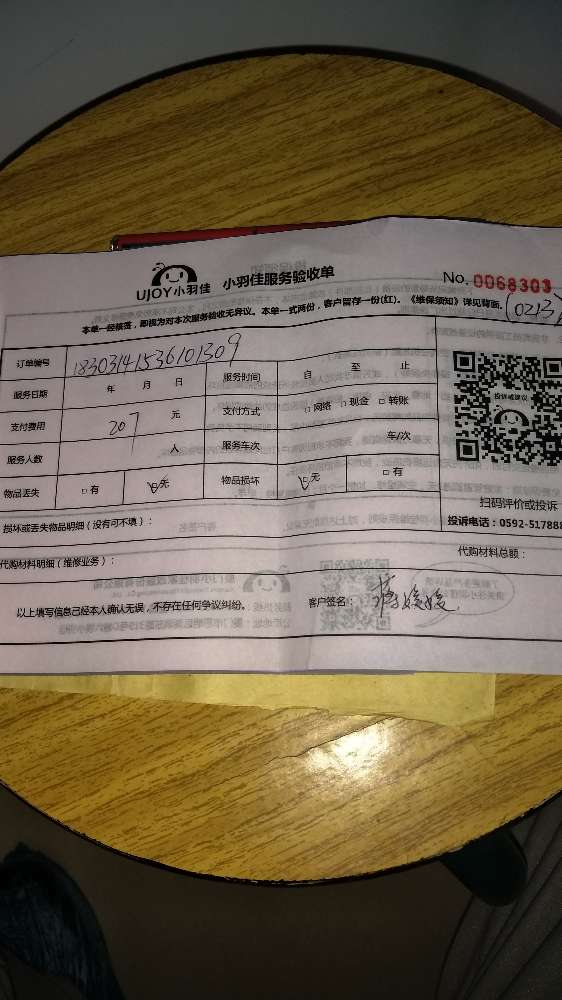 UJOY小羽佳 小羽佳服务验收单 No.0068303
本单一经核签，即视为对本次服务验收无异议。本单一式两份，客户留存一份(红)。《维保须知》详见背面。
(0213
订单编号 18303141536101309
服务日期 年 月 日 服务时间 自 至 止
支付费用 207 元 支付方式 □网络 □现金 □转账
服务人数 人 服务车次 车/次
物品丢失 □有 ☑无 物品损坏 ☑无 □有
投诉或建议
扫码评价或投诉
投诉电话：0592-517888
损坏或丢失物品明细（没有可不填）：
代购材料明细（维修业务）： 代购材料总额：
以上填写信息已经本人确认无误，不存在任何争议纠纷。 客户签名： 媛媛